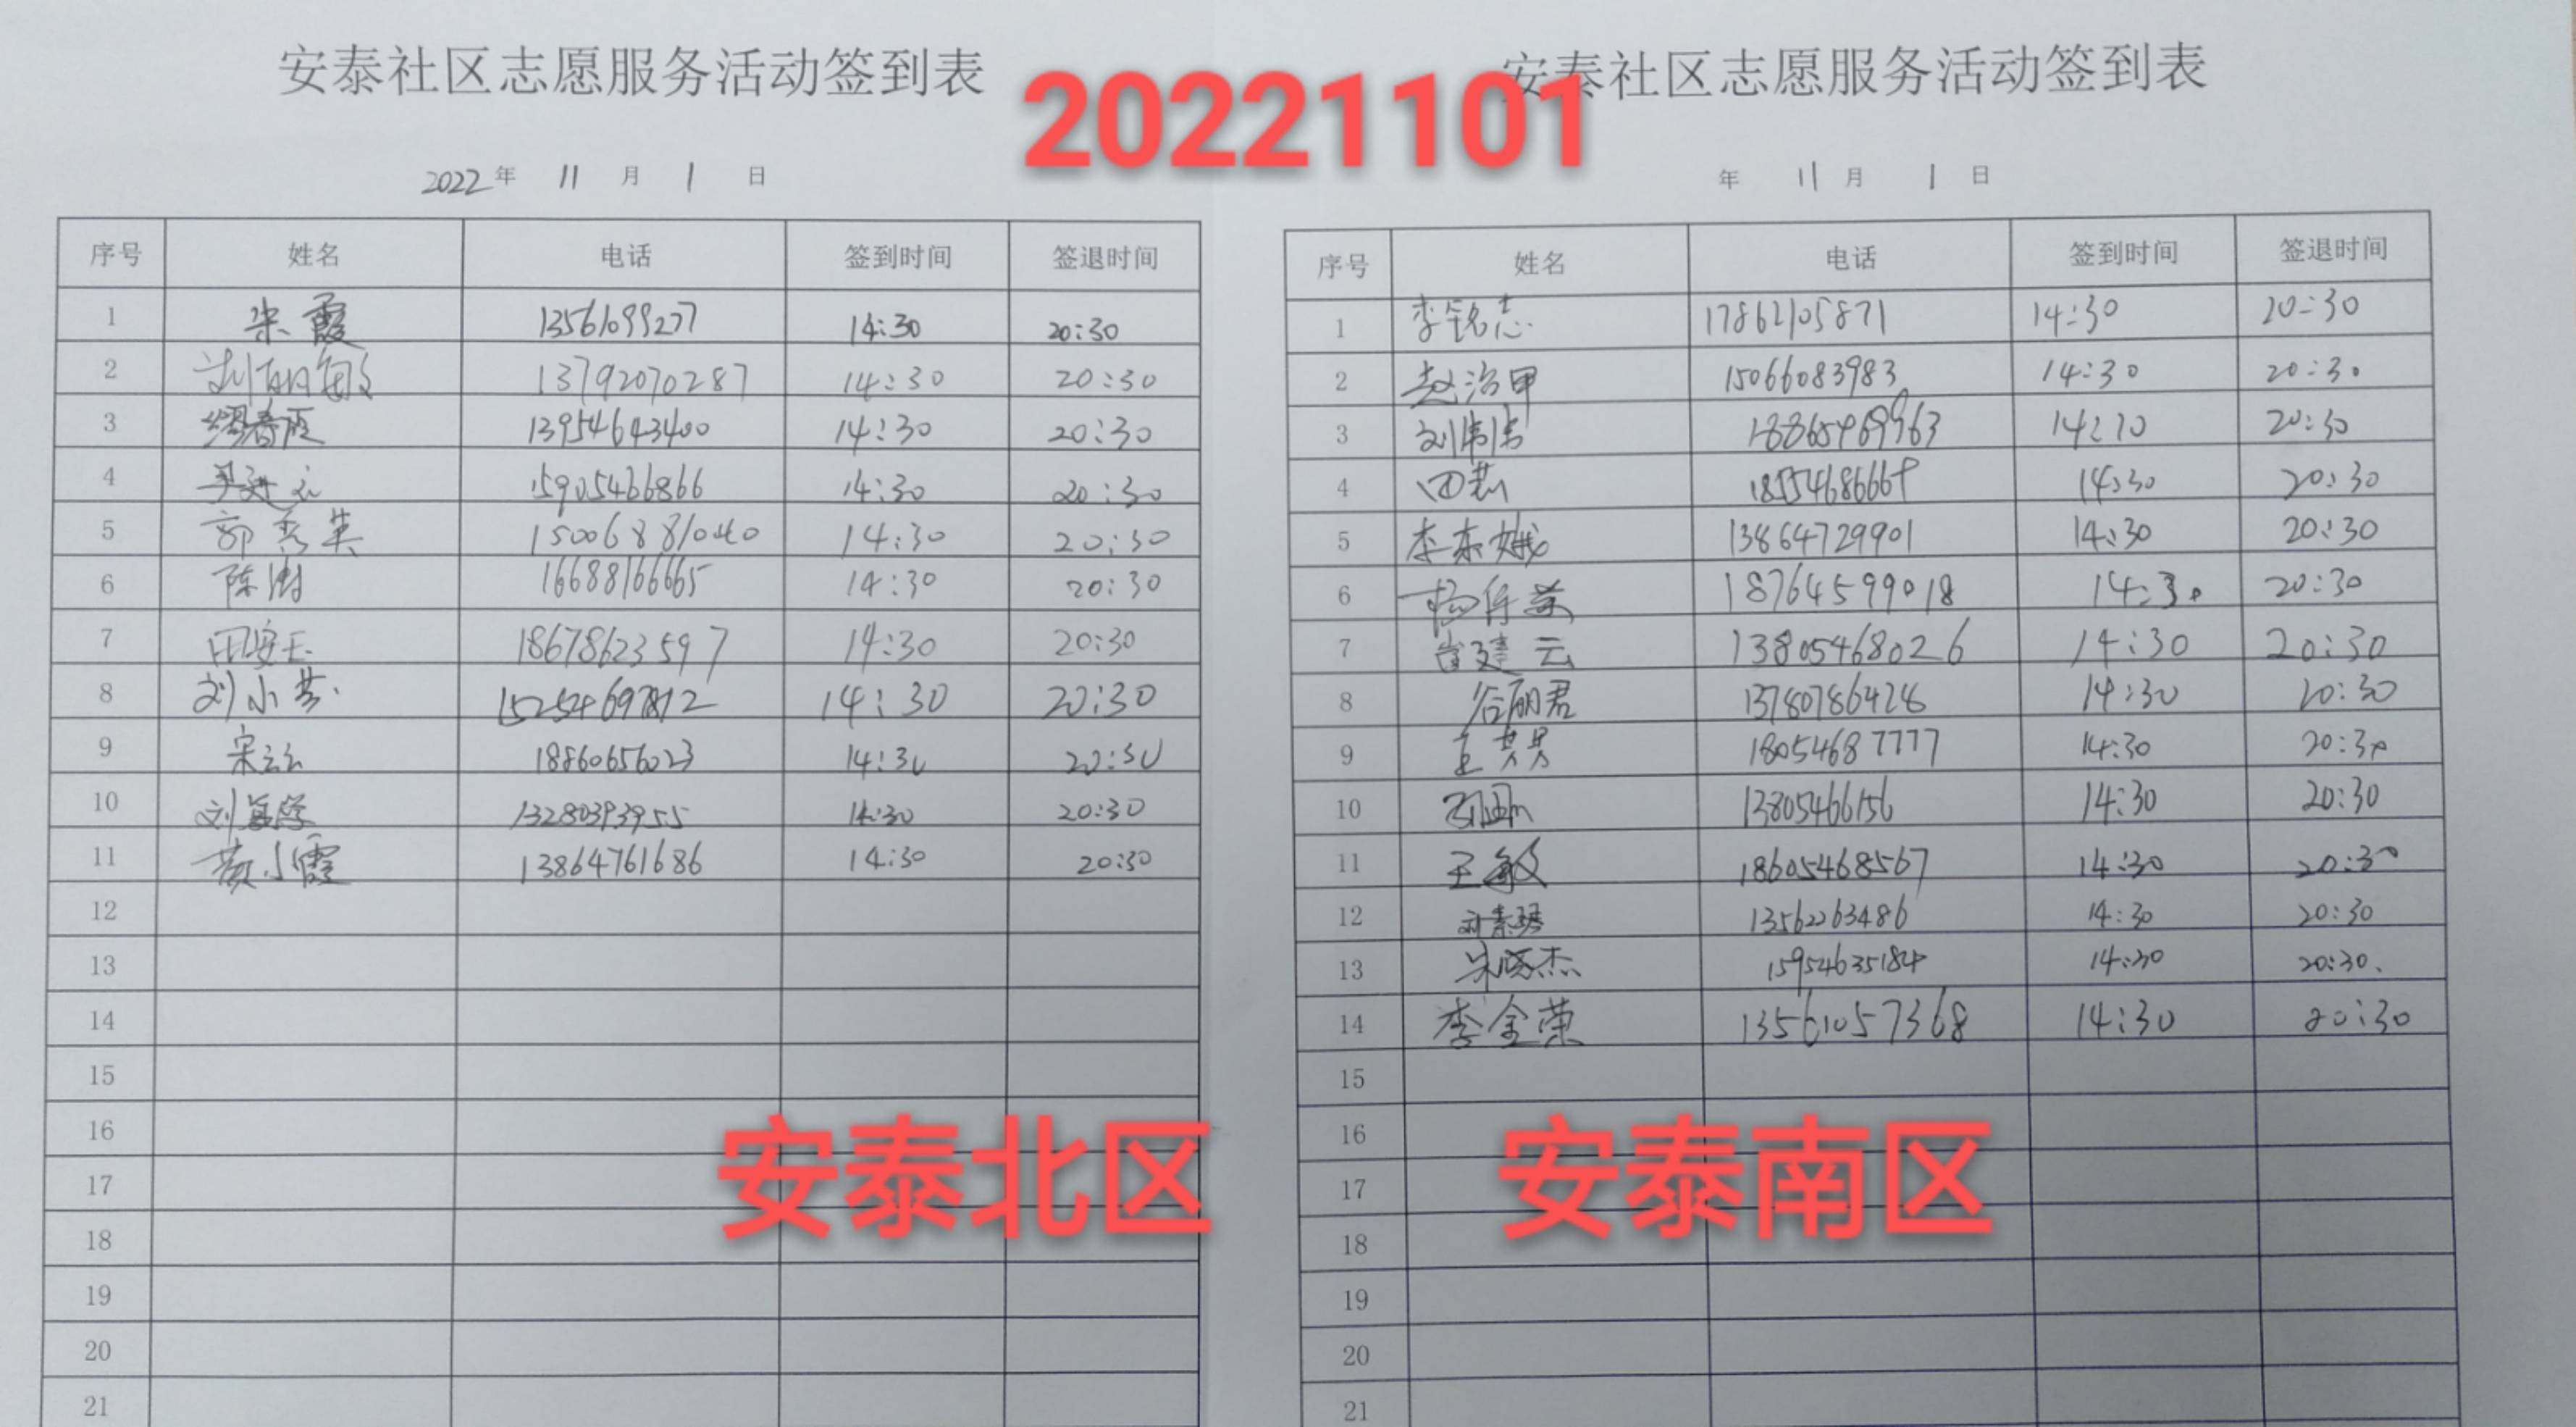 安泰社区志愿服务活动签到表
2022年 11月 1日
序号 姓名 电话 签到时间 签退时间
1 朱霞 13561099277 14:30 20:30
2 刘丽敏 13792070287 14:30 20:30
3 13954643400 14:30 20:30
4 15905466866 14:30 20:30
5 郭秀英 15006881040 14:30 20:30
6 陈澍 16688166665 14:30 20:30
7 田安玉 18678623597 14:30 20:30
8 刘小芬 14:30 20:30
9 宋云云 18860656023 14:30 20:30
10 13280393955 14:30 20:30
11 黄小霞 13864761686 14:30 20:30
12
13
14
15
16
17
18
19
20
21
安泰北区
20221101
安泰社区志愿服务活动签到表
年 11月 1日
序号 姓名 电话 签到时间 签退时间
1 李铭志 17862105871 14:30 20:30
2 赵治甲 15066083983 14:30 20:30
3 刘伟伟 20:30
4 14:30 20:30
5 李东娥 13864729901 14:30 20:30
6 18764599018 14:30 20:30
7 崔建云 13805468026 14:30 20:30
8 谷丽君 13780786428 14:30 20:30
9 18054687777 14:30 20:30
10 13805466156 14:30 20:30
11 王敏 18605468567 14:30 20:30
12 刘素琴 13562263486 14:30 20:30
13 15954635184 14:30 20:30.
14 李金荣 13561057368 14:30 20:30
15
16
17
18
19
20
21
安泰南区